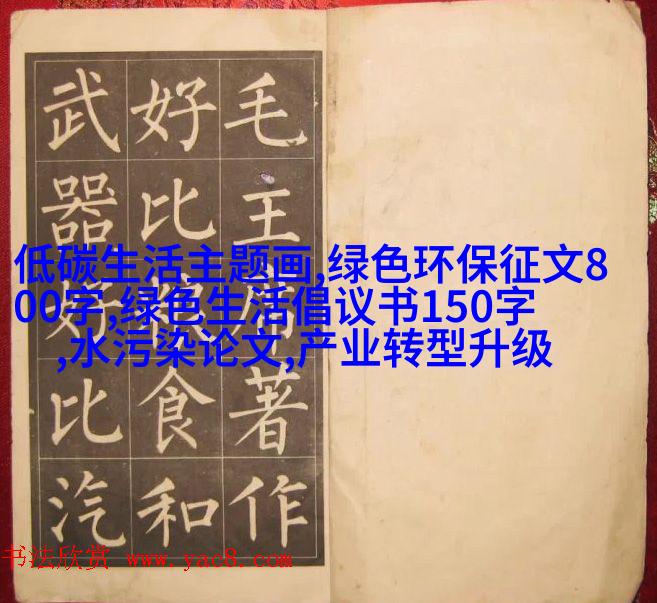 毛主席著作
好比粮食和
武器好比汽
低碳生活主题画,绿色环保征文8
00字,绿色生活倡议书150字
,水污染论文,产业转型升级
书法欣赏 www.yac8.com